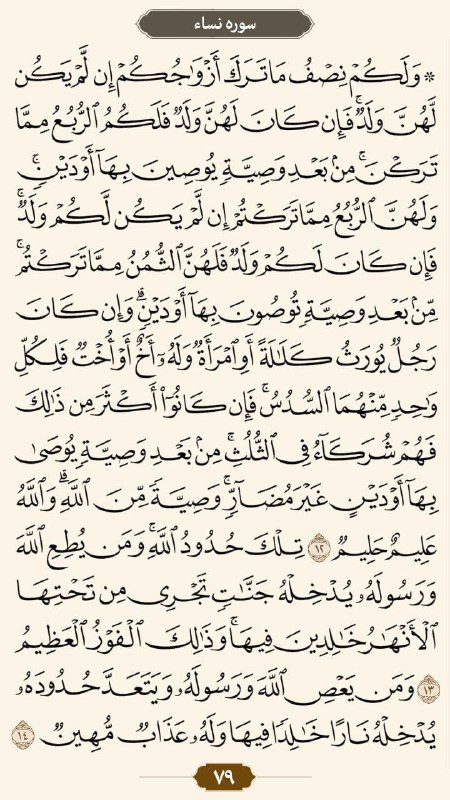 سوره نساء
۞ وَلَكُمْ نِصْفُ مَا تَرَكَ أَزْوَٰجُكُمْ إِن لَّمْ يَكُن
لَّهُنَّ وَلَدٌ ۚ فَإِن كَانَ لَهُنَّ وَلَدٌ فَلَكُمُ ٱلرُّبُعُ مِمَّا
تَرَكْنَ ۚ مِنۢ بَعْدِ وَصِيَّةٍ يُوصِينَ بِهَآ أَوْ دَيْنٍ ۚ
وَلَهُنَّ ٱلرُّبُعُ مِمَّا تَرَكْتُمْ إِن لَّمْ يَكُن لَّكُمْ وَلَدٌ ۚ
فَإِن كَانَ لَكُمْ وَلَدٌ فَلَهُنَّ ٱلثُّمُنُ مِمَّا تَرَكْتُم ۚ
مِّنۢ بَعْدِ وَصِيَّةٍ تُوصُونَ بِهَآ أَوْ دَيْنٍ ۗ وَإِن كَانَ
رَجُلٌ يُورَثُ كَلَٰلَةً أَوِ ٱمْرَأَةٌ وَلَهُۥٓ أَخٌ أَوْ أُخْتٌ فَلِكُلِّ
وَٰحِدٍ مِّنْهُمَا ٱلسُّدُسُ ۚ فَإِن كَانُوٓا۟ أَكْثَرَ مِن ذَٰلِكَ
فَهُمْ شُرَكَآءُ فِى ٱلثُّلُثِ ۚ مِنۢ بَعْدِ وَصِيَّةٍ يُوصَىٰ
بِهَآ أَوْ دَيْنٍ غَيْرَ مُضَآرٍّ ۚ وَصِيَّةً مِّنَ ٱللَّهِ ۗ وَٱللَّهُ
عَلِيمٌ حَلِيمٌ ١٢ تِلْكَ حُدُودُ ٱللَّهِ ۚ وَمَن يُطِعِ ٱللَّهَ
وَرَسُولَهُۥ يُدْخِلْهُ جَنَّٰتٍ تَجْرِى مِن تَحْتِهَا
ٱلْأَنْهَٰرُ خَٰلِدِينَ فِيهَا ۚ وَذَٰلِكَ ٱلْفَوْزُ ٱلْعَظِيمُ
١٣ وَمَن يَعْصِ ٱللَّهَ وَرَسُولَهُۥ وَيَتَعَدَّ حُدُودَهُۥ
يُدْخِلْهُ نَارًا خَٰلِدًا فِيهَا وَلَهُۥ عَذَابٌ مُّهِينٌ ١٤
٧٩